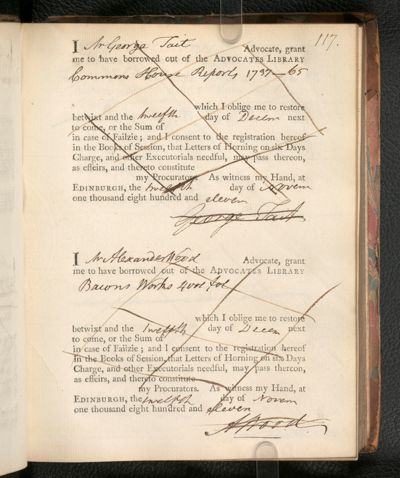 117.
I Mr George Tait Advocate, grant
me to have borrowed out of the ADVOCATES LIBRARY
Commons House Reports 1737-65
which I oblige me to restore
betwixt and the twelfth day of Decem next
to come, or the Sum of
in case of Failzie; and I consent to the registration hereof
in the Books of Session, that Letters of Horning on six Days
Charge, and other Executorials needful, may pass thereon,
as effeirs, and thereto constitute
my Procurators. As witness my Hand, at
EDINBURGH, the twelfth day of Novem
one thousand eight hundred and eleven
George Tait
I Mr Alexander Wood Advocate, grant
me to have borrowed out of the ADVOCATES LIBRARY
Bacons Works 4 vol fol
which I oblige me to restore
betwixt and the Twelfth day of Decem next
to come, or the Sum of
in case of Failzie; and I consent to the registration hereof
in the Books of Session, that Letters of Horning on six Days
Charge, and other Executorials needful, may pass thereon,
as effeirs, and thereto constitute
my Procurators. As witness my Hand, at
EDINBURGH, the twelfth day of Novem
one thousand eight hundred and eleven
A Wood